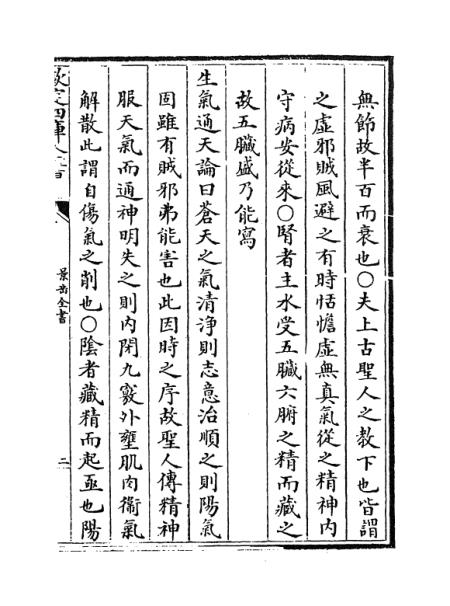 無節故半百而衰也〇夫上古聖人之教下也皆謂
之虛邪賊風避之有時恬憺虛無真氣從之精神内
守病安從來〇腎者主水受五臟六腑之精而藏之
故五臟盛乃能寫
生氣通天論曰蒼天之氣清淨則志意治順之則陽氣
固雖有賊邪弗能害也此因時之序故聖人傳精神
服天氣而通神明失之則内閉九竅外壅肌肉衞氣
解散此謂自傷氣之削也〇陰者藏精而起亟也陽
欽定四庫全書
景岳全書
二